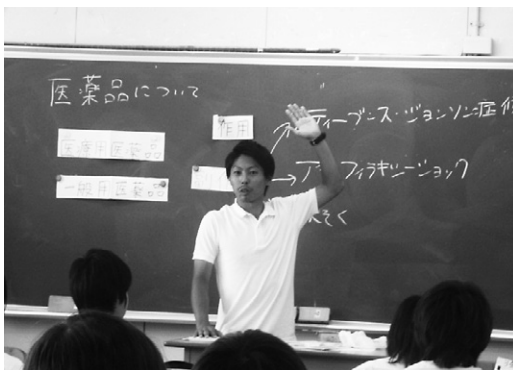 医薬品について
医療用医薬品
一般用医薬品
作用
ティーブンス・ジョンソン症候
アナフィラキシーショック
んそく